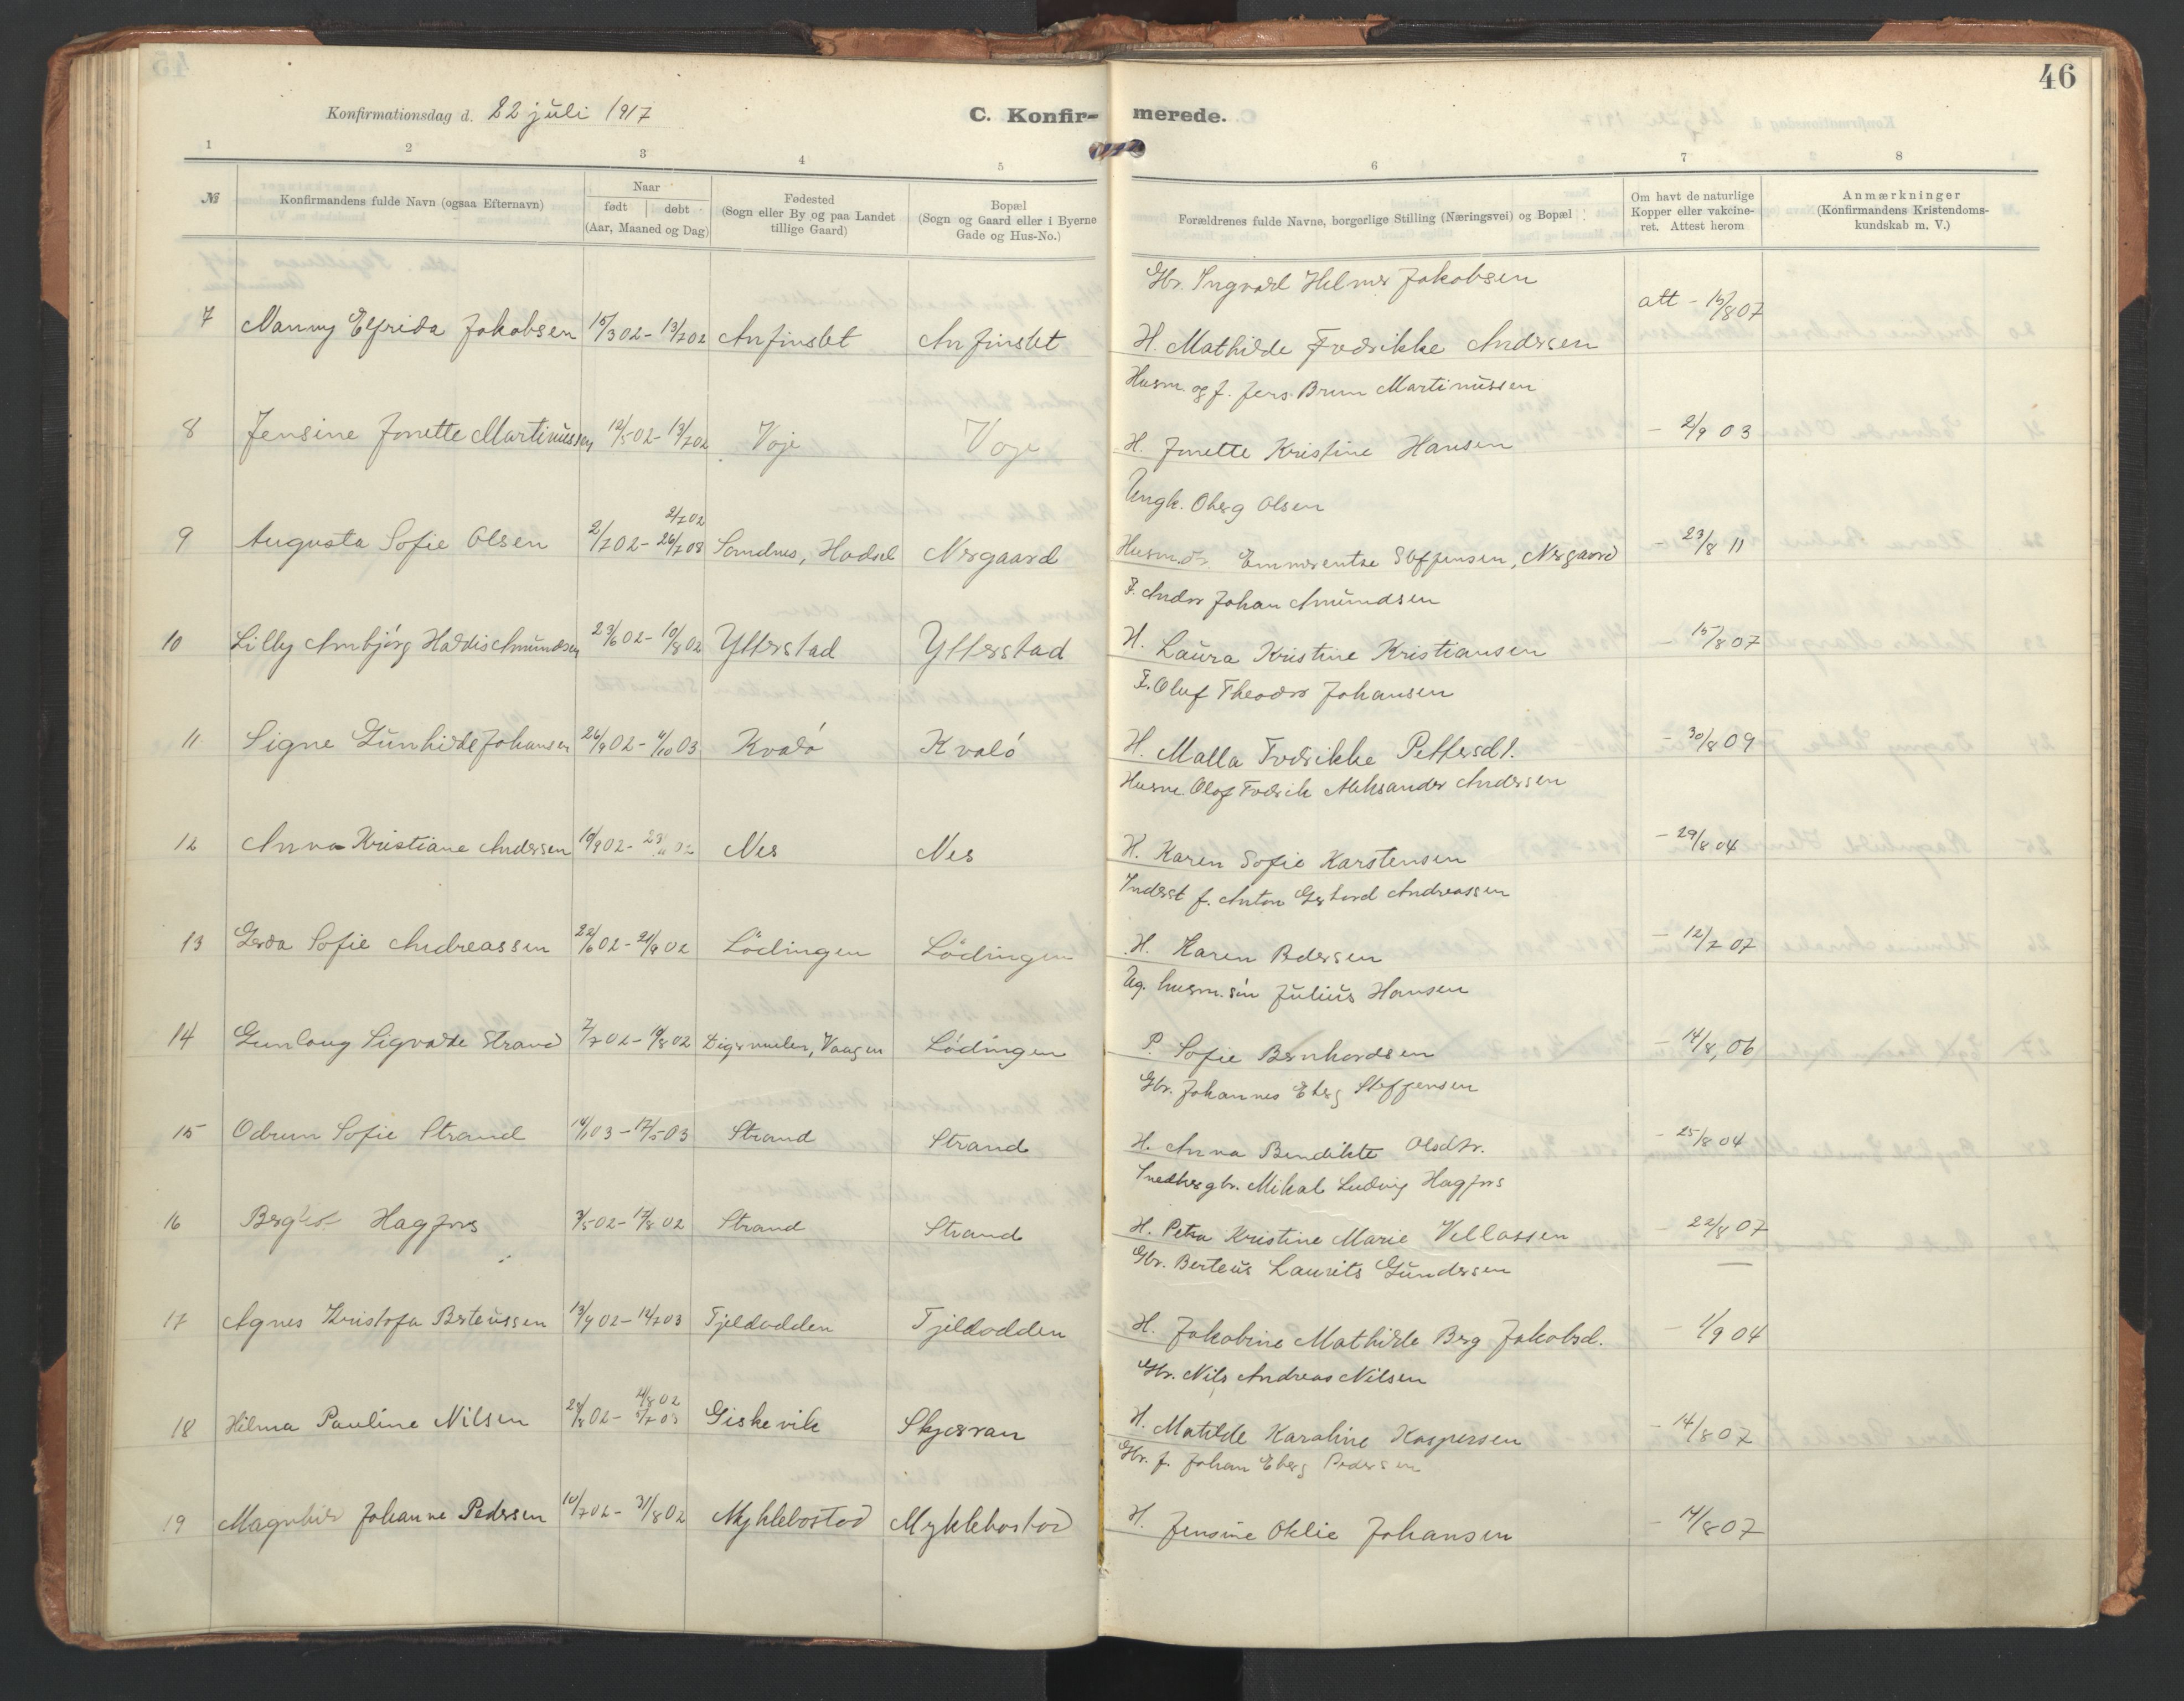 46
Konfirmationsdag d. 22 juli 1917
C. Konfir-merede.
1 2 3 4 5 6 7 8
№
Konfirmandens fulde Navn (ogsaa Efternavn)
Naar
født døbt
(Aar, Maaned og Dag)
Fødested
(Sogn eller By og paa Landet
tillige Gaard)
Bopæl
(Sogn og Gaard eller i Byerne
Gade og Hus-No.)
Forældrenes fulde Navne, borgerlige Stilling (Næringsvei) og Bopæl
Om havt de naturlige
Kopper eller vakcine-
ret. Attest herom
Anmærkninger
(Konfirmandens Kristendoms-
kundskab m. V.)
Gbr. Ingvald Helmer Jakobsen
7 Nanny Elfrida Jakobsen 15/3 02 - 13/7 02 Anfinslet Anfinslet H. Mathilde Fredrikke Andersen att - 15/8 07
Husm. og f. Jens Brun Martinussen
8 Jensine Jonette Martinussen 12/5 02 - 13/7 02 Voje Voje H. Jonette Kristine Hansen - 2/9 03
Ungk. Oberg Olsen
2/7 02
9 Augusta Sofie Olsen 2/7 02 - 26/7 08 Sandnes, Hadsel Nergaard Husm.d. Emmerentse Steffensen, Nergaard - 23/8 11
F. Ander Johan Amundsen
10 Lilly Arnbjørg Haldis Amundsen 23/6 02 - 10/8 02 Ytterstad Ytterstad H. Laura Kristine Kristiansen - 15/8 07
F. Oluf Theodor Johansen
11 Signe Gunhilde Johansen 26/9 02 - 4/10 03 Kvalö Kvalö H. Malla Fredrikke Pettersdt. - 30/8 09
Husm. Olaf Fredrik Aleksander Andersen
12 Anna Kristiane Andersen 19/9 02 - 23/11 02 Nes Nes H. Karen Sofie Karstensen - 29/8 04
Inderst f. Anton Gerhard Andreassen
13 Gerda Sofie Andreassen 22/6 02 - 21/9 02 Lödingen Lödingen H. Karen Pedersen - 12/7 07
Ug. husm. sön Julius Hansen
14 Gunlaug Sigvalde Strand 7/7 02 - 19/8 02 Digermulen, Vaagan Lödingen P. Sofie Bernhardsen - 14/8, 06
Gbr. Johannes Eberg Steffensen
15 Odrun Sofie Strand 14/1 03 - 17/5 03 Strand Strand H. Anna Bendikte Olsdtr. - 25/8 04
Snedker gbr. Mikal Ludvig Hagfors
16 Bergliot Hagfors 3/5 02 - 17/8 02 Strand Strand H. Petra Kristine Marie Vellassen - 22/8 07
Gbr. Berteus Laurits Gundersen
17 Agnes Kristofa Berteussen 13/9 02 - 12/7 03 Tjeldodden Tjeldodden H. Jakobine Mathilde Berg Jakobsd. - 1/9 04
Gbr. Nils Andreas Nilsen
18 Hilma Pauline Nilsen Giskevik Skjærvan H. Matilde Karoline Kaspersen - 14/8 07
Gbr. f. Johan Eberg Pedersen
19 Magnhild Johanne Pedersen 10/7 02 - 31/8 02 Myklebostad Myklebostad H. Jensine Oklie Johansen - 14/8 07